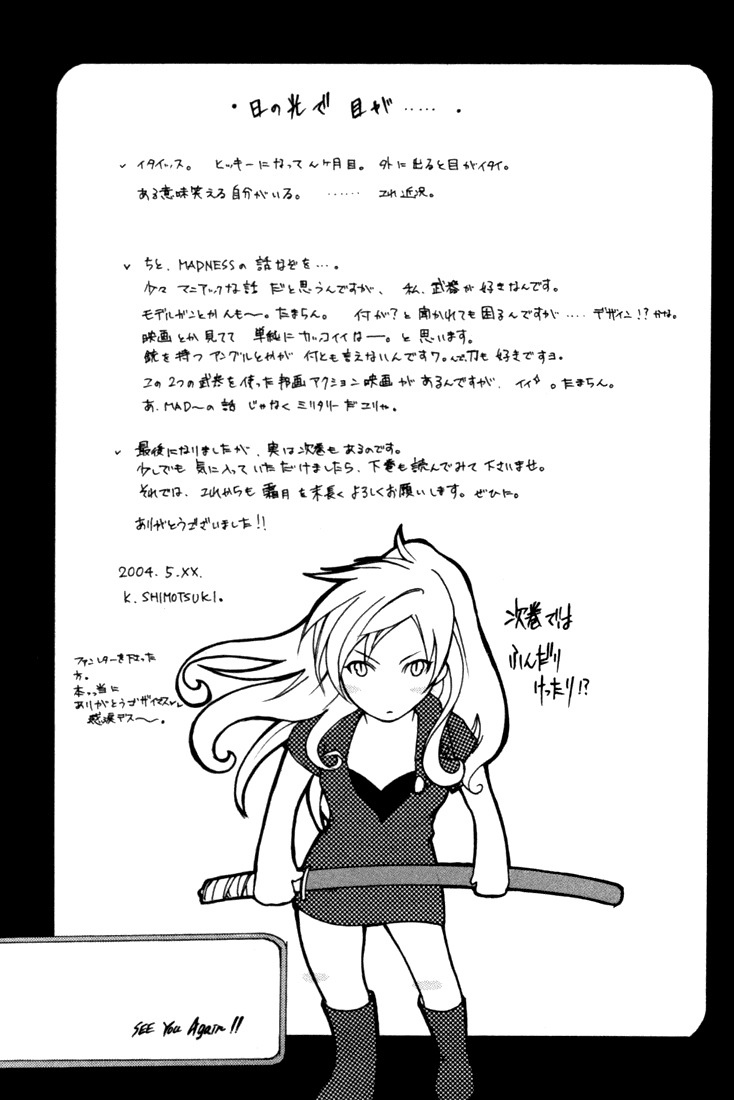 ・日の光で 目が……・
✓ イタイッス。 ヒッキーになってんヶ月目。 外に出ると目がイタイ。
ある意味笑える自分がいる。 …… これ近況。
✓ ちと、MADNESSの 話などを…。
少々 マニアックな話 だと思うんですが、 私、武器が好きなんです。
モデルガンとかんも〜。たまらん。 何が？と聞かれても困るんですが…. デザイン!?かな。
映画とか見てて 単純にカッコイイなー。と思います。
銃を持つ アングルとかが 何とも言えないんですワ。んで刀も好きですヨ。
この2つの武器を使った邦画アクション映画があるんですが、イイ。たまらん。
あ、MAD〜の話 じゃなく ミリタリーだこりゃ。
✓ 最後になりましたが、実は次巻もあるのです。
少しでも 気に入っていただけましたら、下巻も読んでみて下さいませ。
それでは、これからも 霜月を末長くよろしくお願いします。ぜひに。
ありがとうございました!!
2004.5.XX.
K.SHIMOTSUKI.
ファンレターを下さった
方。
本っ当に
ありがとうゴザイマス
感涙デス〜〜。
次巻では
ふんだり
けったり!?
SEE You Again!!